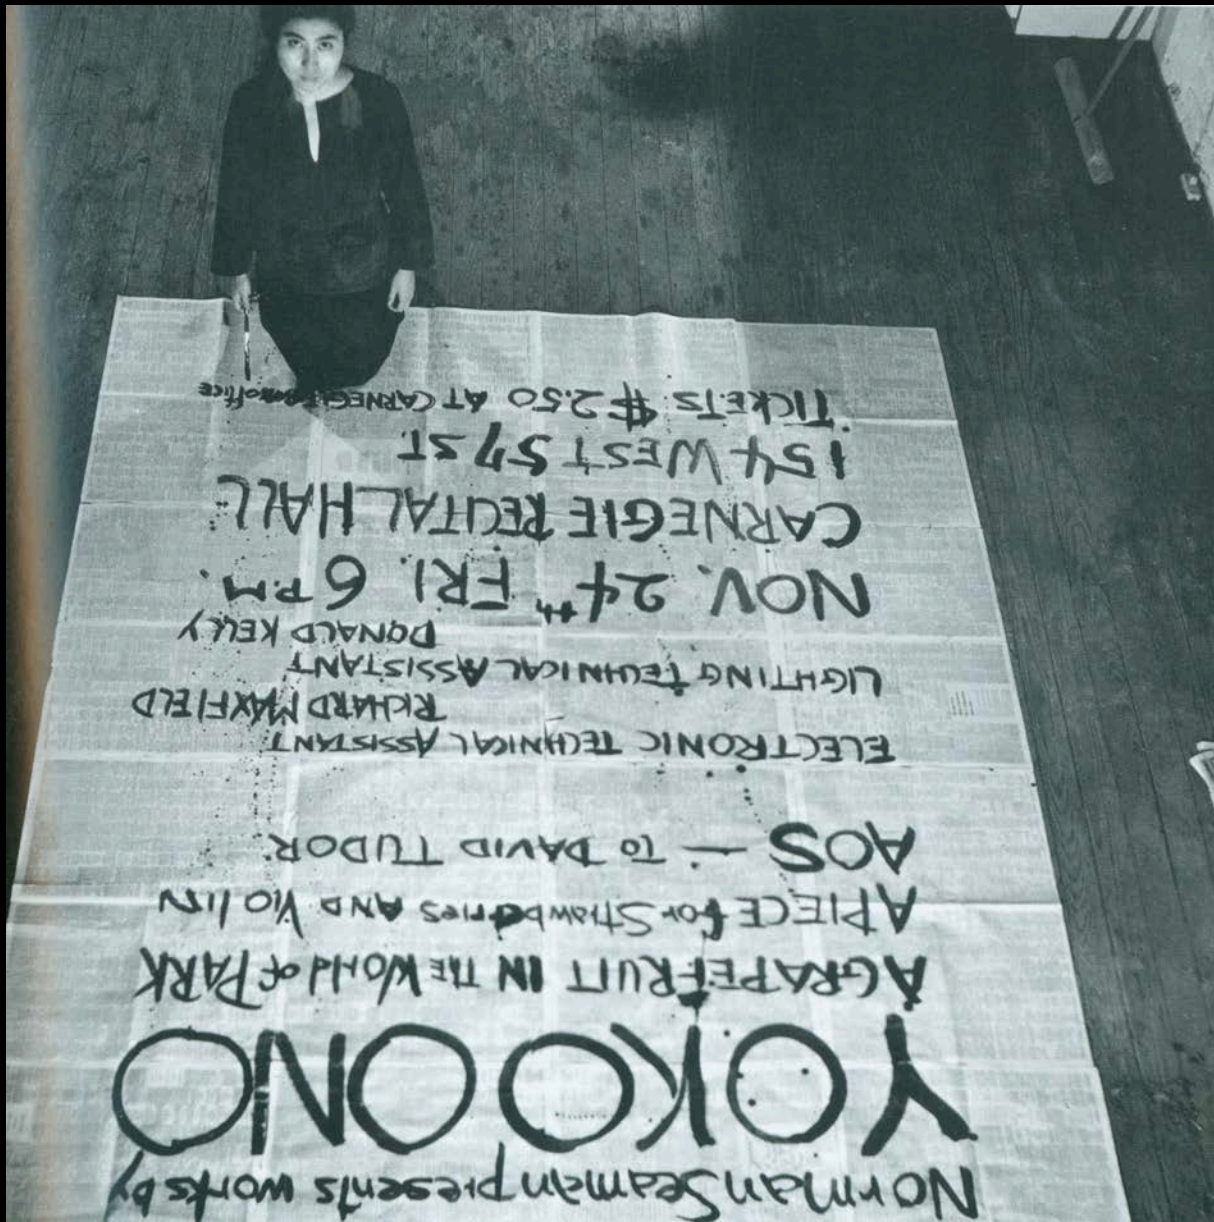 Norman Seaman presents works by
YOKO ONO
A GRAPEFRUIT IN THE WORLD of PARK
A PIECE for StrawberrieS AND VIOLIN
AOS — TO DAVID TUDOR
ELECTRONIC TECHNICAL ASSISTANT
RICHARD MAXFIELD
LIGHTING TECHNICAL ASSISTANT
DONALD KELLY
NOV. 24th FRI. 6 P.M.
CARNEGIE RECITAL HALL
154 WEST 57 ST.
TICKETS $2.50 AT CARNEGIE office